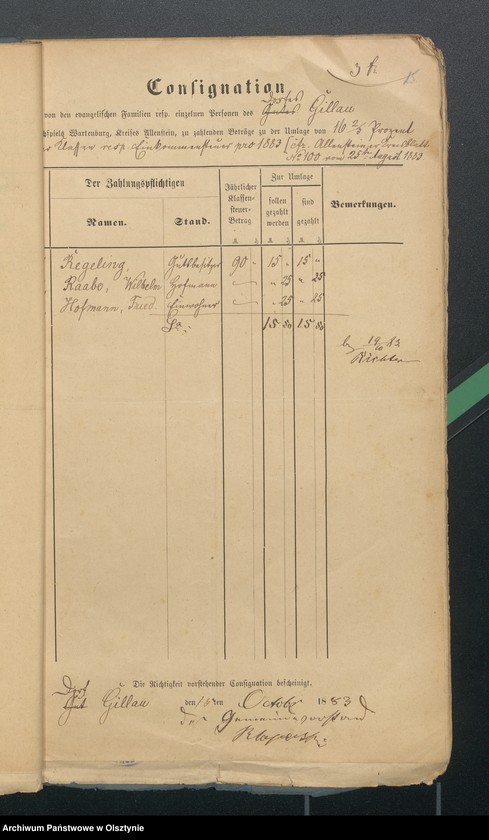 3 k
Consignation
von den evangelischen Familien resp. einzelnen Personen des Dorfes Gutes Gillau
hspiels Wartenburg, Kreises Allenstein, zu zahlenden Beträge zu der Umlage von 16 2/3 Prozent
r Classen resp. Einkommensteuer pro 1883 (cfr. Allensteiner Kreis Blatt
No 100 vom 25ten August 1883
Der Zahlungspflichtigen
Namen.
Stand.
Jährlicher Klassen-steuer-Betrag
Zur Umlage
sollen gezahlt werden
sind gezahlt
Bemerkungen.
Regeling, Gutsbesitzer 90 - 15 " 15 "
Raabe, Wilhelm Hofmann " 25 " 25
Hofmann, Fried. Einwohner " 25 " 25
Sa: 15 50 15 50
19/10 83
Richter
Die Richtigkeit vorstehender Consignation bescheinigt.
Dorf Gut Gillau den ten October 1883
der Gemeindevorstand
Archiwum Państwowe w Olsztynie